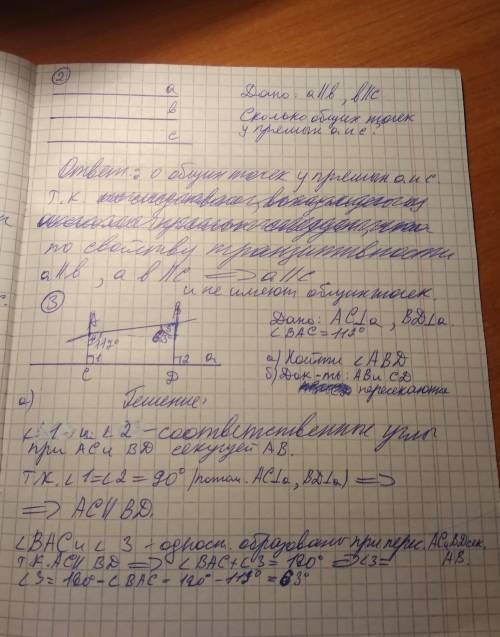 ②
a
b
c
Дано: a||b, b||c
Сколько общих точек
у прямых a и c?
Ответ: 0 общих точек у прямых a и c
т.к
по свойству транзитивности
a||b, а b||c ⟹ a||c
и не имеют общих точек.
③
117°
1
2
a
C
D
Дано: AC⊥a, BD⊥a.
∠BAC=117°
а) Найти ∠ABD
б) Док-ть: AB и CD
пересекаются
а) Решение:
∠1 и ∠2 - соответственные углы
при AC и BD секущей AB.
Т.К. ∠1=∠2=90° (потом. AC⊥a, BD⊥a) ⟹
⟹ AC||BD.
∠BAC и ∠3 - одност. образованы при перес. AC и BD сек.
AB.
т.к. AC||BD ⟹ ∠BAC+∠3=180° ⟹ ∠3=
∠3=180°-∠BAC=180°-117°=63°